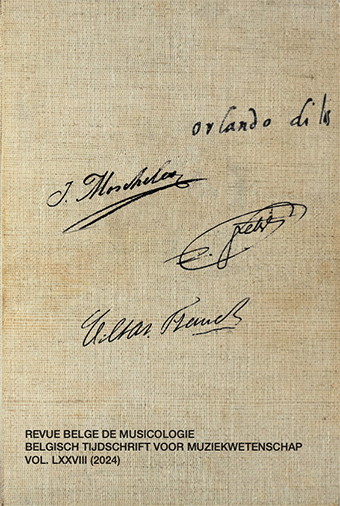 orlando di las
J. Moscheles
Fetis
César Franck
REVUE BELGE DE MUSICOLOGIE
BELGISCH TIJDSCHRIFT VOOR MUZIEKWETENSCHAP
VOL. LXXVIII (2024)